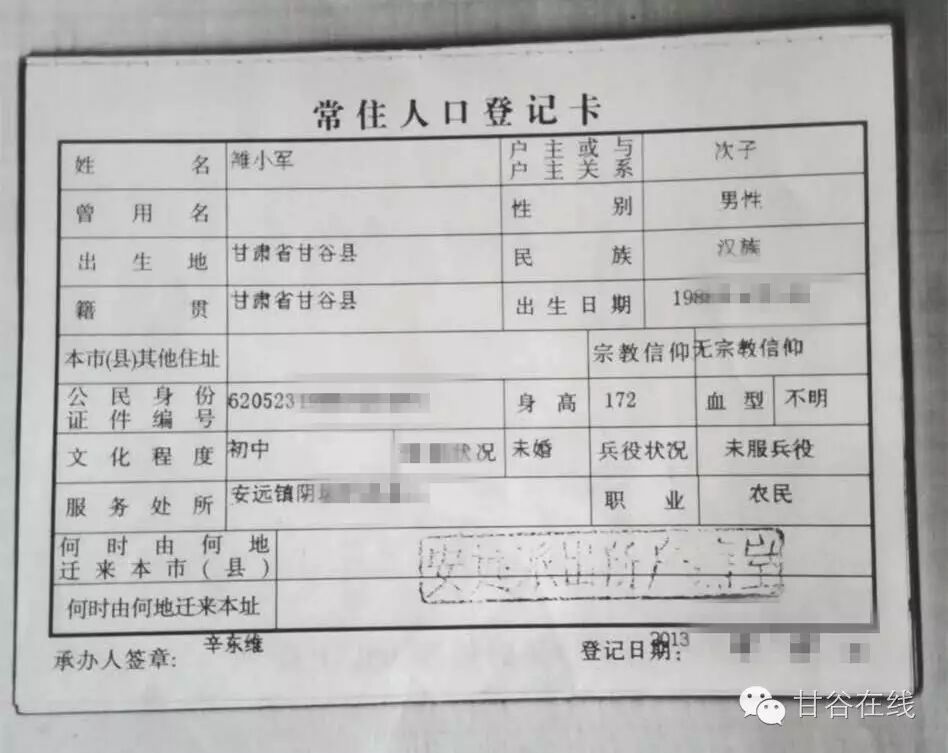 常住人口登记卡
姓名 雒小军 户主或与户主关系 次子
曾用名 性别 男性
出生地 甘肃省甘谷县 民族 汉族
籍贯 甘肃省甘谷县 出生日期 198
本市(县)其他住址 宗教信仰 无宗教信仰
公民身份证件编号 6205231 身高 172 血型 不明
文化程度 初中 状况 未婚 兵役状况 未服兵役
服务处所 安远镇阴 职业 农民
何时由何地迁来本市(县)
何时由何地迁来本址
安远派出所
承办人签章: 辛东维 登记日期: 2013
甘谷在线